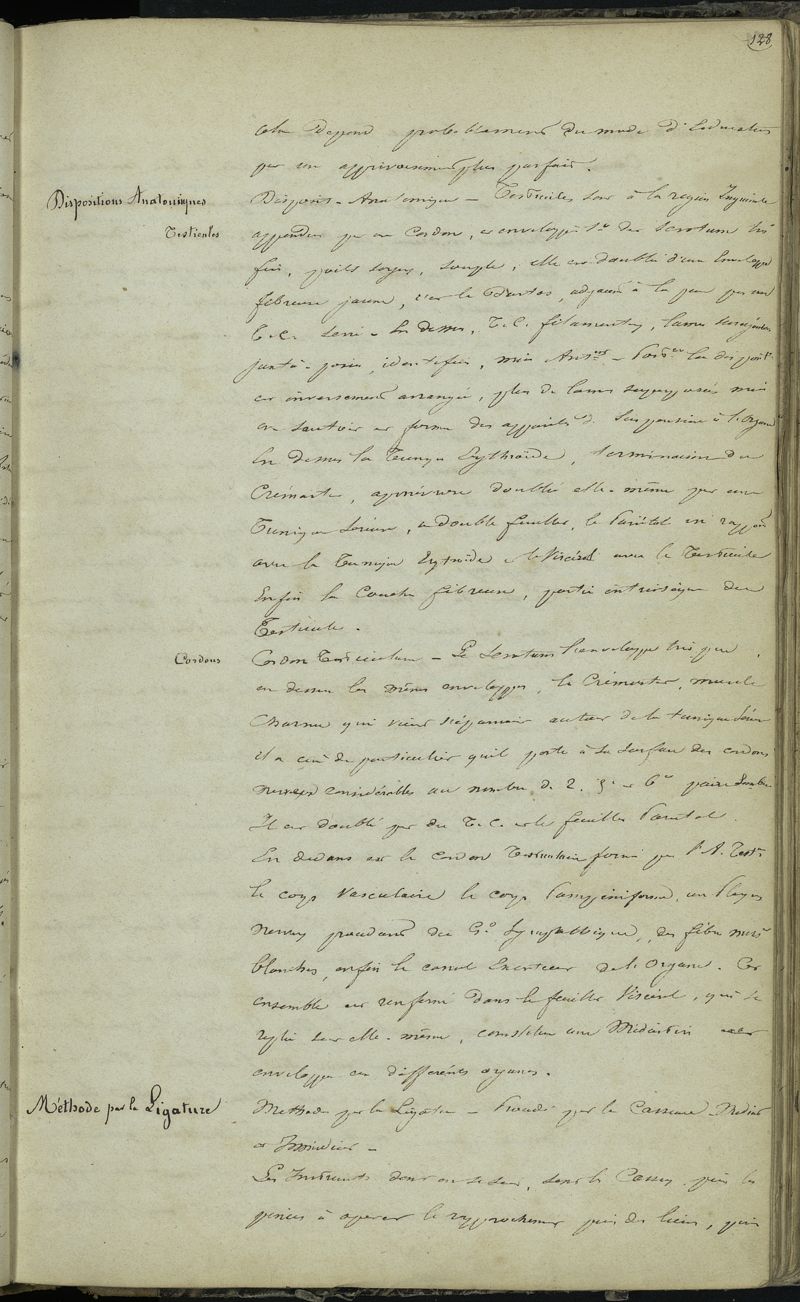 128
cela Depend probablement du mode d'Education
par un apprivoisement plus parfait.
Dispositions Anatomiques
Disposit- Anatomique - Testicules sont à la region Inguinale
Testicules
appendus par un Cordon, et enveloppés 1° du Scrotum très
fin, poils soyeux, souple, elle est doublée d'une Enveloppe
fibreuse jaune, c'est le Dartos, adjacent à la peau par un
T.C. serré - En dessous, T.C. filamenteux, lames
juxta-posées, mais
et inversement arrangées, plus de lames superposées mais
en sautoir et forme des appareils de Suspension à l'Organe
En dessous la Tunique Erythroïde, terminaison du
Crémaster, aponévrose doublée elle-même par une
Tunique Séreuse, à double feuillet, le Pariétal en rapport
avec la Tunique Erytroïde et le Viscéral avec le Testicule
Enfin la Couche fibreuse, partie intrinsèque du
Testicule.
Cordons
Cordon Testiculaire - Le Scrotum l'enveloppe très peu,
en dessous les mêmes enveloppes, le Crémaster, muscle
Charnu qui vient s'épanouir autour de la tunique Séreuse
il a ceci de particulier qu'il porte à sa surface des cordons
nerveux considérables au nombre de 2. 5e et 6e paire Lombaire
Il est doublé par du T.C. et le feuillet Parietal.
En dedans est le cordon Testiculaire formé par l'A. Testre
le corps Vasculaire le corps Pampiniforme, un Plexus
Nerveux procédant du Gd Sympathique, des fibres muscres
blanches, enfin le canal Excréteur de l'Organe. Cet
ensemble est renfermé dans le feuillet Viscéral, qui se
replie sur elle-même, constitue une Médiastin
enveloppe ces différents organes.
Méthode par la Ligature
Méthode par la Ligature - Procédé par le Casseau - Médiat
et Immédiat -
Les Instruments dont on se sert, sont les Casseaux puis les
pinces à opérer le rapprochement puis des liens, puis